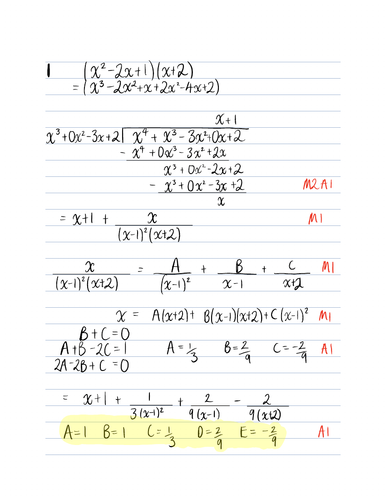 1 (x²-2x+1)(x+2)
= (x³-2x²+x+2x²-4x+2)
x+1
x³+0x²-3x+2 | x⁴ + x³ - 3x²+0x+2
- x⁴+0x³-3x²+2x
x³+0x²-2x+2
- x³+0x²-3x+2 M2A1
x
= x+1 + x/((x-1)²(x+2)) M1
x/((x-1)²(x+2)) = A/(x-1)² + B/(x-1) + C/(x+2) M1
x = A(x+2) + B(x-1)(x+2)+C(x-1)² M1
B+C=0
A+B-2C=1 A=1/3 B=2/9 C=-2/9 A1
2A-2B+C=0
= x+1 + 1/(3(x-1)²) + 2/(9(x-1)) - 2/(9(x+2))
A=1 B=1 C=1/3 D=2/9 E=-2/9 A1